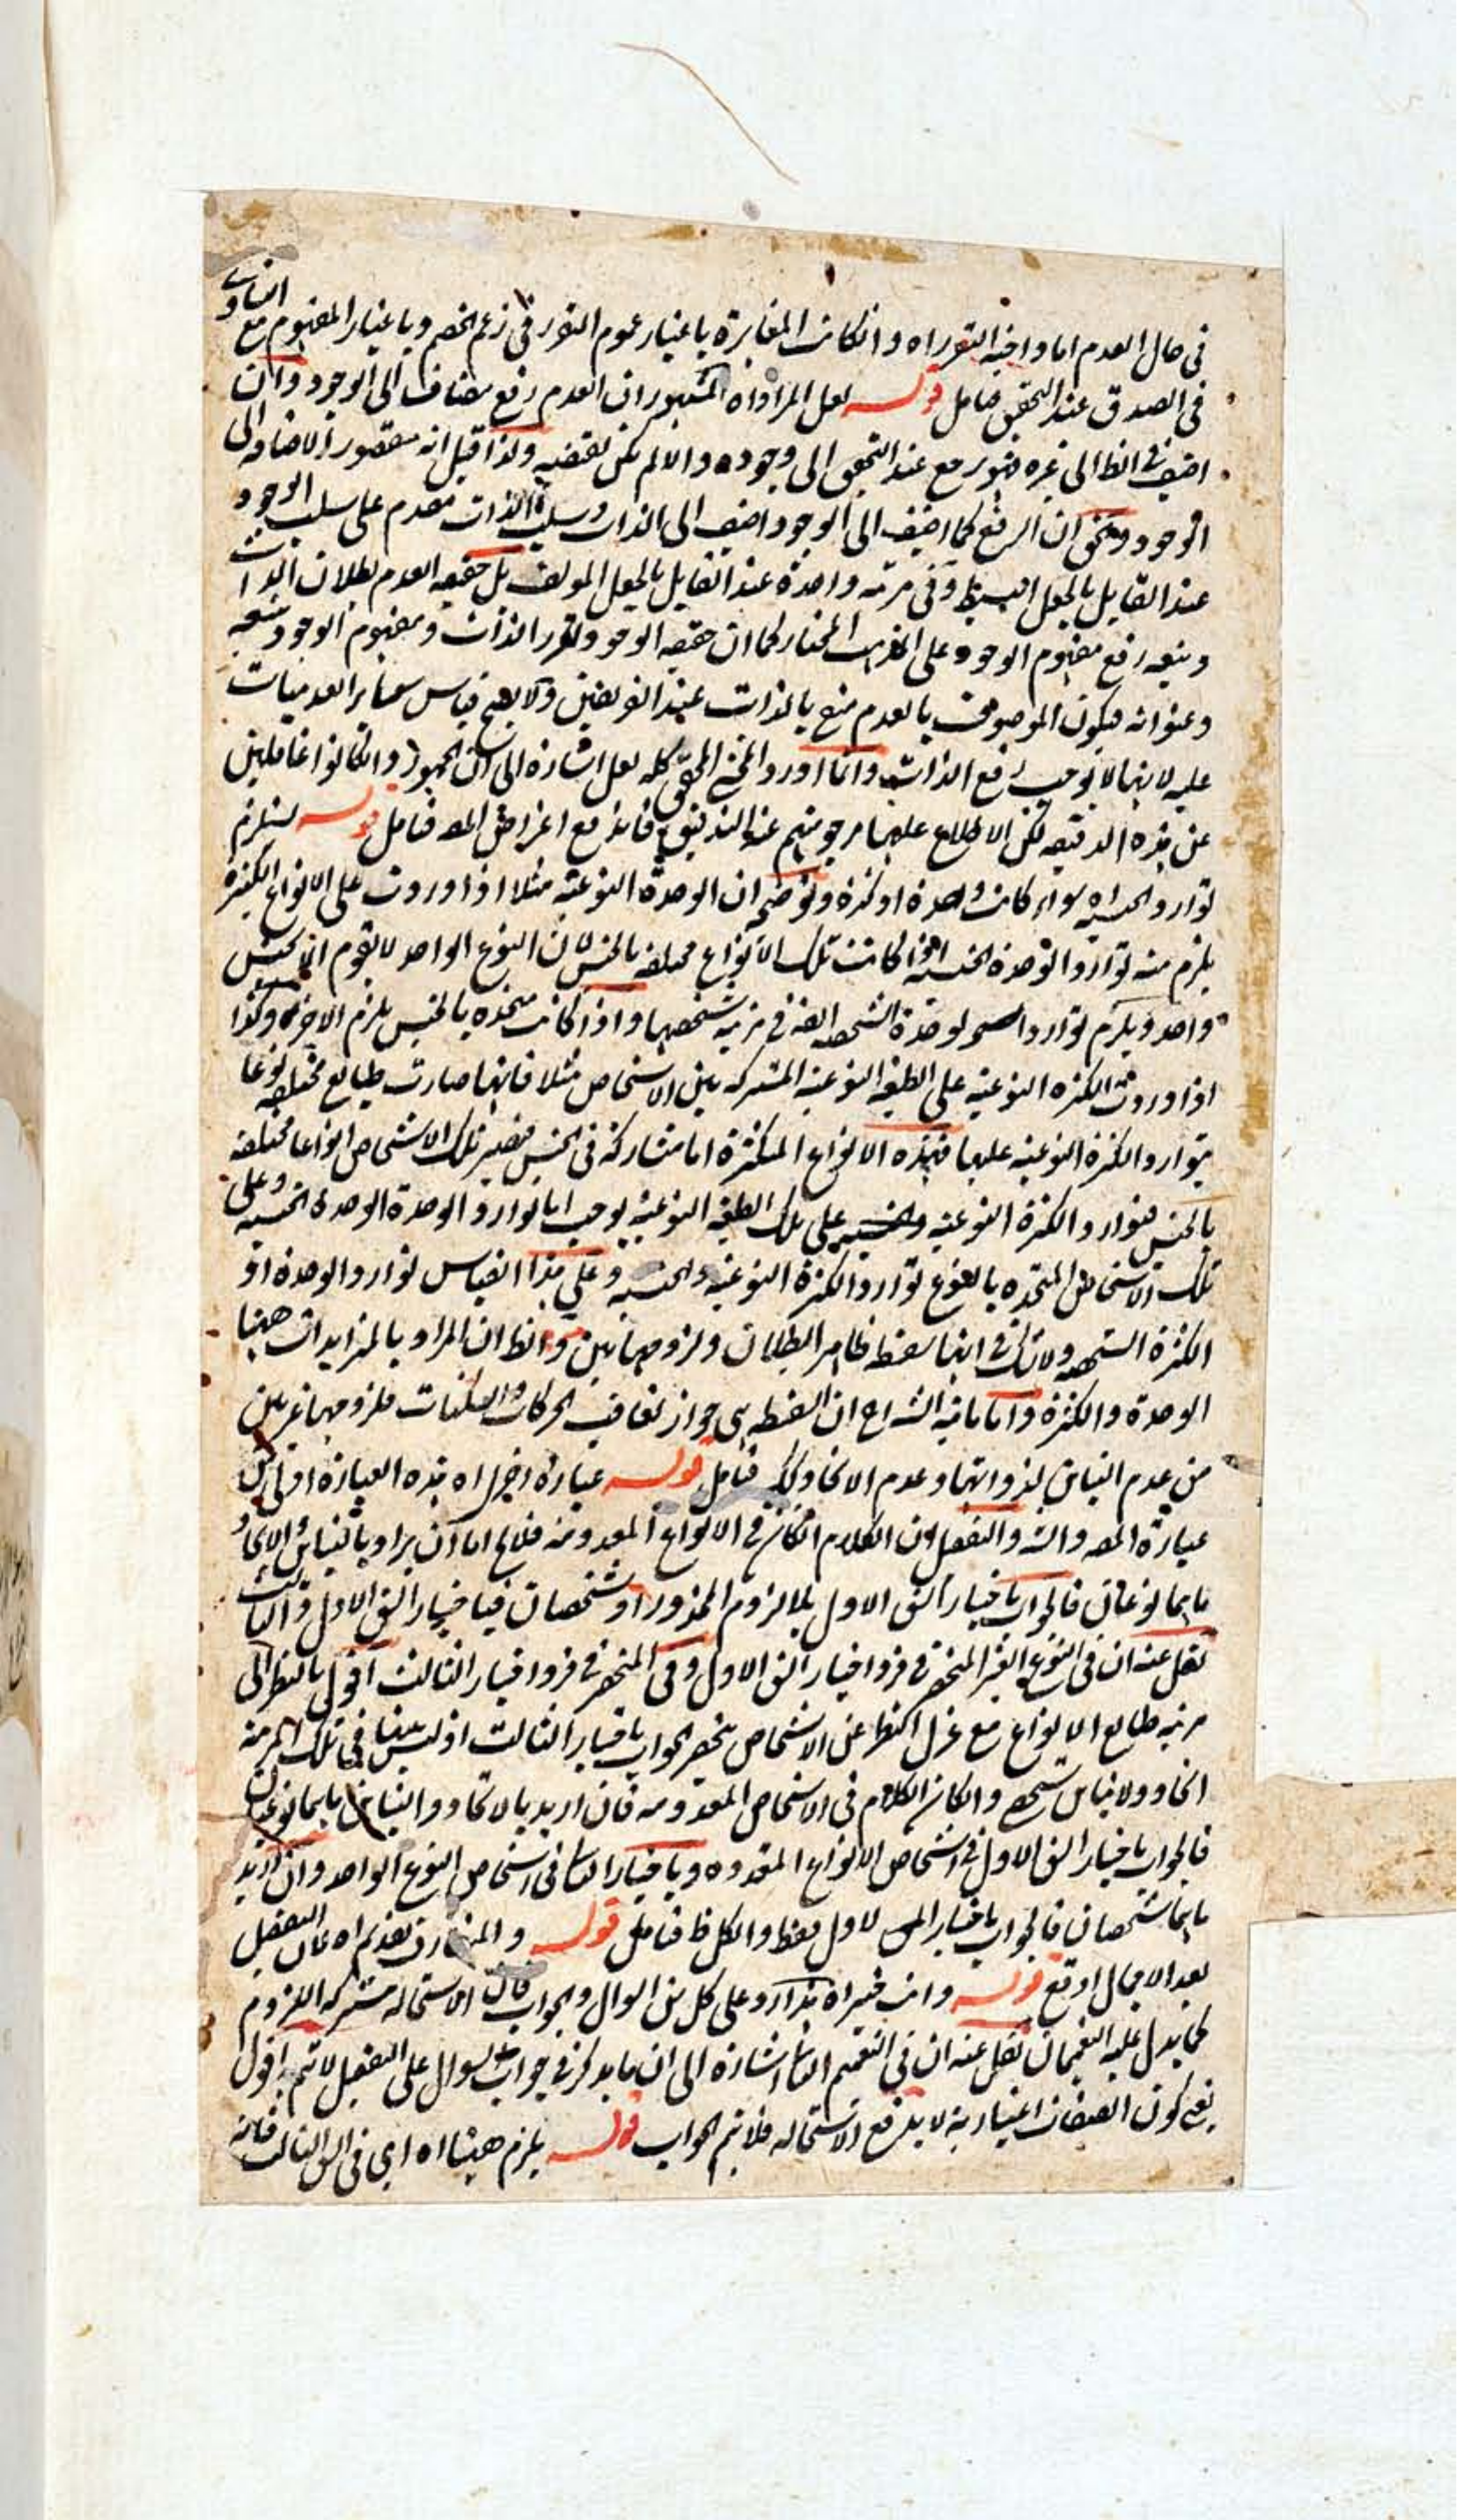 في حال العدم اما واخيه التقرر اه وانكانت المغايرة باعتبار عموم التقرر في زعم الخصم وباعتبار المفهوم مع
في الصدق عند التحقيق فتامل قوله لعل المراد اه المشهور ان العدم رفع مضاف الى الوجود وان
اضيف في الظ الى غيره فهو يرجع عند التحقيق الى وجوده والا لم يكن نقيضه ولذا قيل انه مقصور الاضافه الى
الوجود والحق ان الرفع كما اضيف الى الوجود اضيف الى الذات وسلب الذات مقدم على سلب الوجود
عند القايل بالجعل البسيط وفي مرتبه واحدة عند القايل بالجعل المولف بل حقيقه العدم بطلان الذات
ويتبعه رفع مفهوم الوجود على المذهب المختار كما ان حقيقه الوجود تقرر الذات ومفهوم الوجود يتبعه
وعنوانه فيكون الموصوف بالعدم منع بالذات عند الفريقين ولا يصح قياس ساير العدميات
عليه لانها لا توجب رفع الذات وانما اورد المحشي المحقق كلمه لعل اشارة الى ان الجمهور وانكانوا غافلين
عن هذه الدقيقه لكن الاطلاع عليها مرجو منهم عند التدقيق فاندفع اعتراض المص فتامل قوله يستلزم
توارد الجنسيه اه سواء كانت وحدة او كثرة وتوضيحه ان الوحدة النوعيه مثلا اذا وردت على الانواع الكثيرة
يلزم منه توارد الوحدة الجنسيه اذا كانت تلك الانواع مختلفه بالجنس لان النوع الواحد لا يقوم الا بجنس
واحد ويلزم توارد الوحدة الشخصيه ايضا في مرتبه تشخصها واذا كانت متحده بالجنس يلزم الاخر وكذا
اذا وردت الكثره النوعيه على الطبيعه النوعيه المشتركه بين الاشخاص مثلا فانها صارت طبايع مختلفه نوعا
بتوارد الكثرة النوعيه عليها فهذه الانواع المتكثرة اما متشاركة في الجنس فتصير تلك الاشخاص انواعا مختلفه
بالجنس فتوارد الكثرة النوعيه والجنسيه على تلك الطبيعه النوعيه يوجب اما توارد الوحدة الوحدة الجنسيه وعلى
تلك الاشخاص المتحده بالنوع توارد الكثرة النوعيه والجنسيه وعلى هذا القياس توارد الوحدة او
الكثرة الشخصيه ولا شك في انها سفسطه ظاهر البطلان ولزومهما بين والظ ان المراد بالمتزايدات ههنا
الوحدة والكثرة واما ما فيه الشراح ان السفسطه هي جواز تعاقب الحركات والسكنات فلزومهما غير بين
من عدم التباين لذواتهما وعدم الاتحاد كذلك فتامل قوله عبارة اخرى اه هذه العبارة اولى من
عبارة المص والش والتفصيل ان الكلام انكان في الانواع المعدومه فلايخ اما ان يراد بالتباين والاتحاد
ما بهما نوعان فالجواب باختيار الشق الاول بلا لزوم المحذور او شخصان فباختيار الشق الاول والثالث
نقل عنه ان في النوع الغير المنحصر في فرد اختيار الشق الاول وفي المنحصر في فرد اختيار الثالث اقول بالنظر الى
مرتبه طبايع الانواع مع عزل النظر عن الاشخاص ينحصر الجواب باختيار الثالث اذ ليس بينها في تلك المرتبة
اتحاد ولا تباين شخصي وانكان الكلام في الاشخاص المعدومه فان اريد بالاتحاد والتباين ما بهما نوعيان
فالجواب باختيار الشق الاول في اشخاص الانواع المتعدده وباختيار الثاني في اشخاص النوع الواحد وان اريد
ما بهما شخصان فالجواب باختيار الشق الاول فقط والكل ظ فتامل قوله والمتعارف تقديم اه فان التفصيل
بعد الاجمال اوقع قوله وانت خبير اه هذا رد على كل من السوال والجواب قال الاستحاله مشتركه اللزوم
كما يدل عليه التعميمان نقل عنه ان في التعميم الثاني اشارة الى ان ما يذكر في جواب السوال على التفصيل لا يتم اقول
يعني كون الصفات اعتبارية لا يدفع الاستحاله فلا يتم الجواب قوله يلزم ههنا اه اي في الشق الثالث فانه